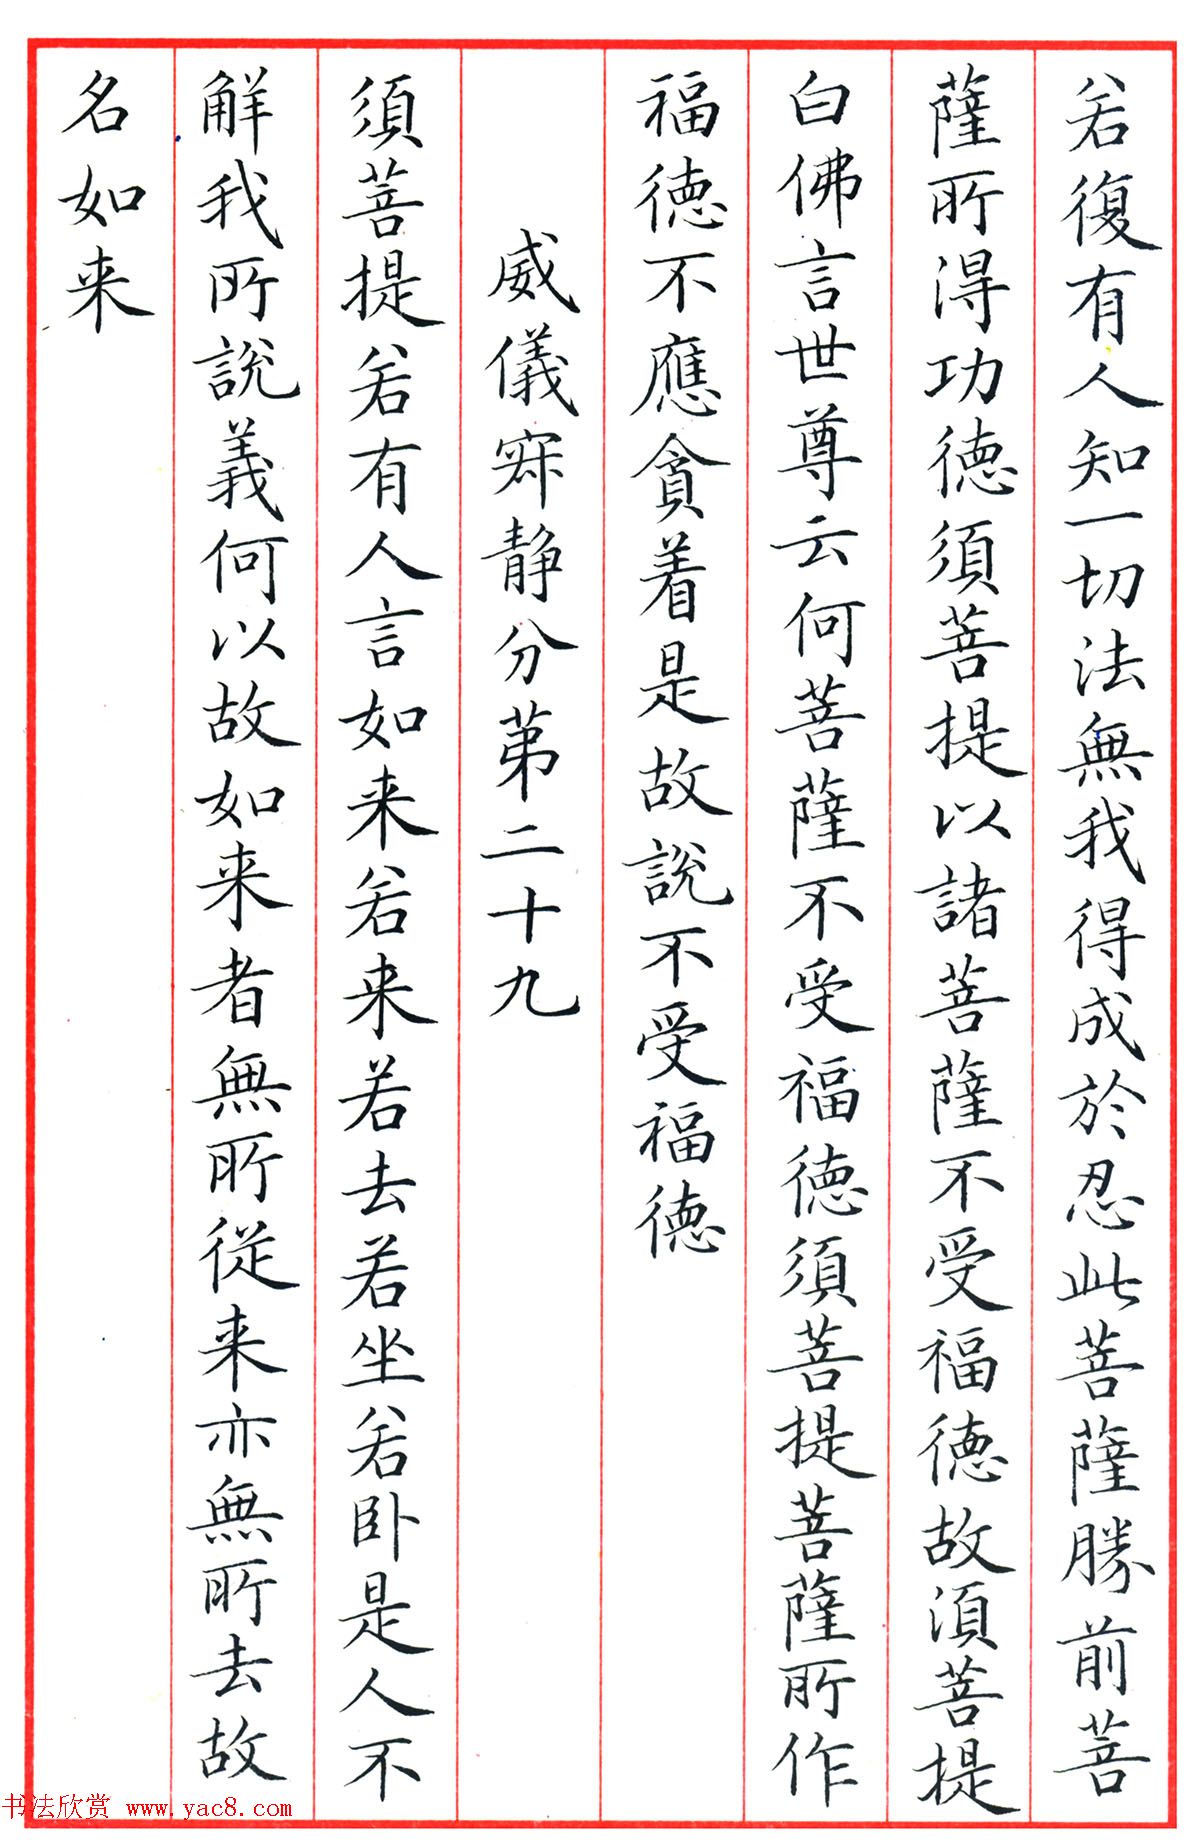 若復有人知一切法無我得成於忍此菩薩勝前菩
薩所得功德須菩提以諸菩薩不受福德故須菩提
白佛言世尊云何菩薩不受福德須菩提菩薩所作
福德不應貪着是故說不受福德
威儀寂静分第二十九
須菩提若有人言如来若来若去若坐若卧是人不
解我所說義何以故如来者無所從来亦無所去故
名如来
书法欣赏 www.yac8.com